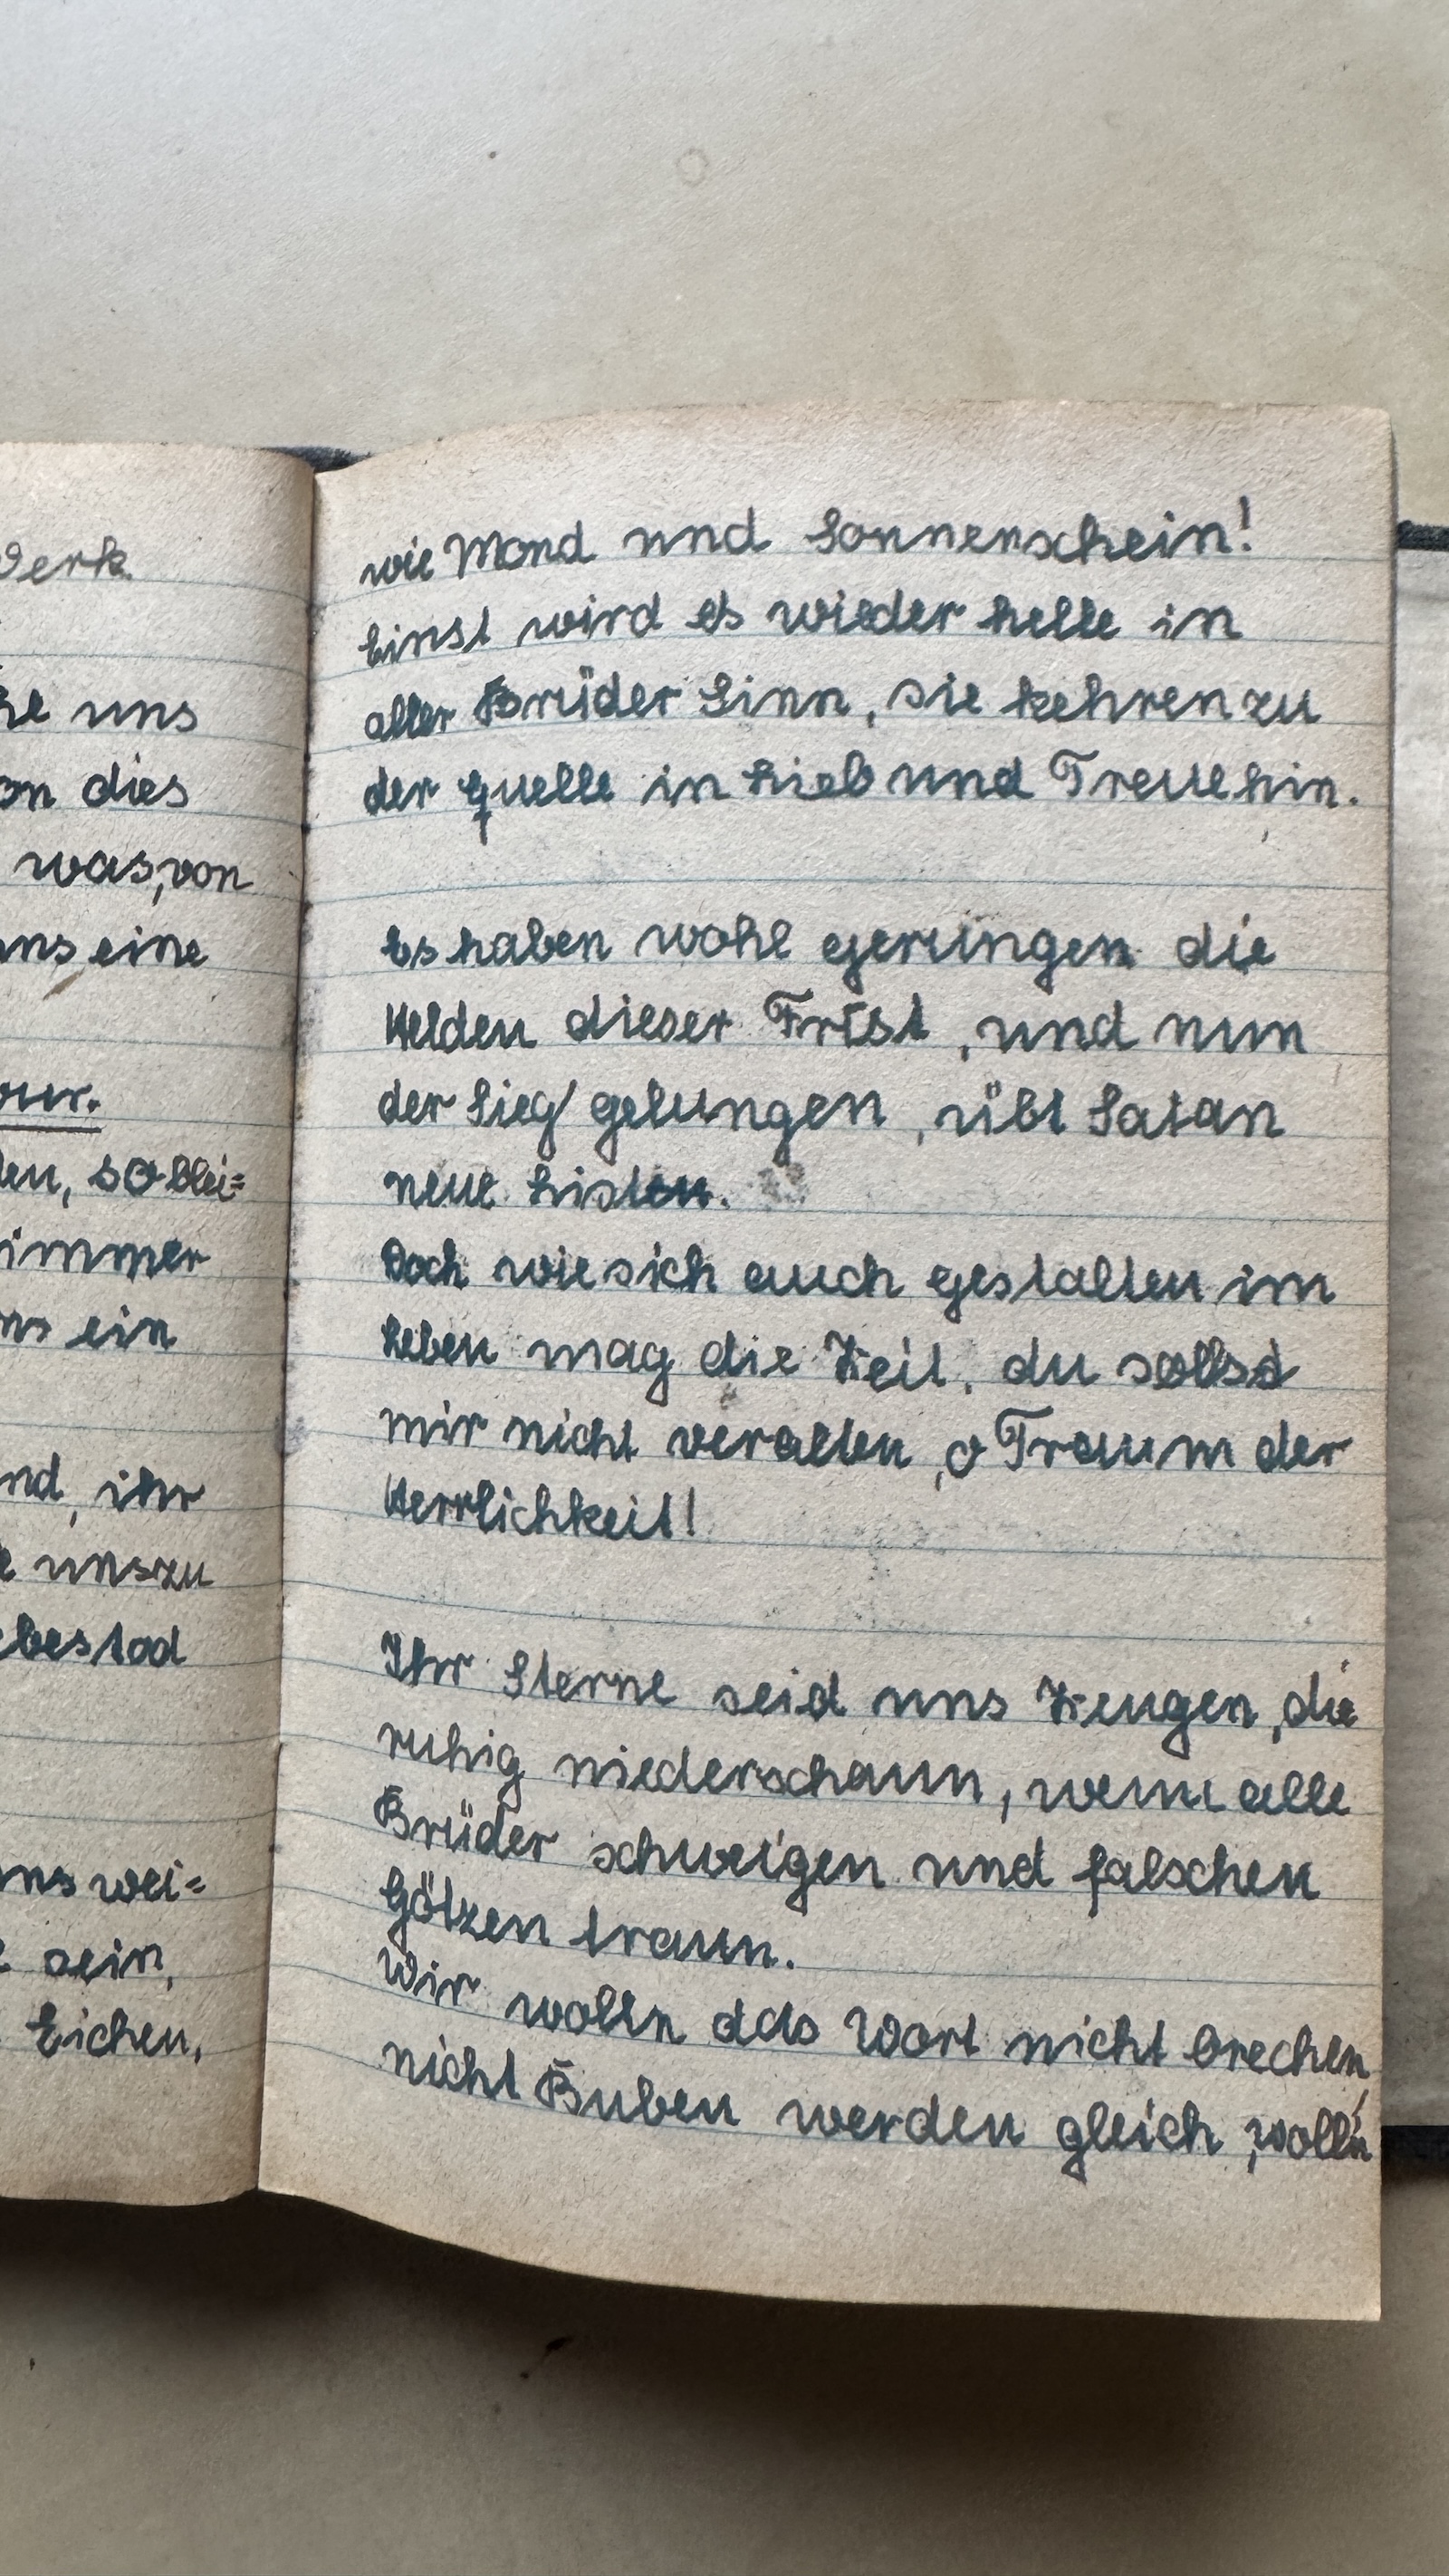 Werk.
uns
dies
was, von
uns eine
, so blei=
immer
ein
, ihr
uns zu
wei=
sein,
Eichen,
wie Mond und Sonnenschein!
Einst wird es wieder helle in
aller Brüder Sinn, sie kehren zu
der Quelle in Lieb und Treue hin.
Es haben wohl gerungen die
Helden dieser Frist, und nun
der Sieg gelungen, übt Satan
neue Listen.
Doch wie sich auch gestalten im
Leben mag die Zeit, du sollst
mir nicht veralten, o Traum der
Herrlichkeit!
Ihr Sterne seid uns Zeugen, die
ruhig niederschaun, wenn alle
Brüder schweigen und falschen
Götzen traun.
Wir wolln das Wort nicht brechen
nicht Buben werden gleich, wolln